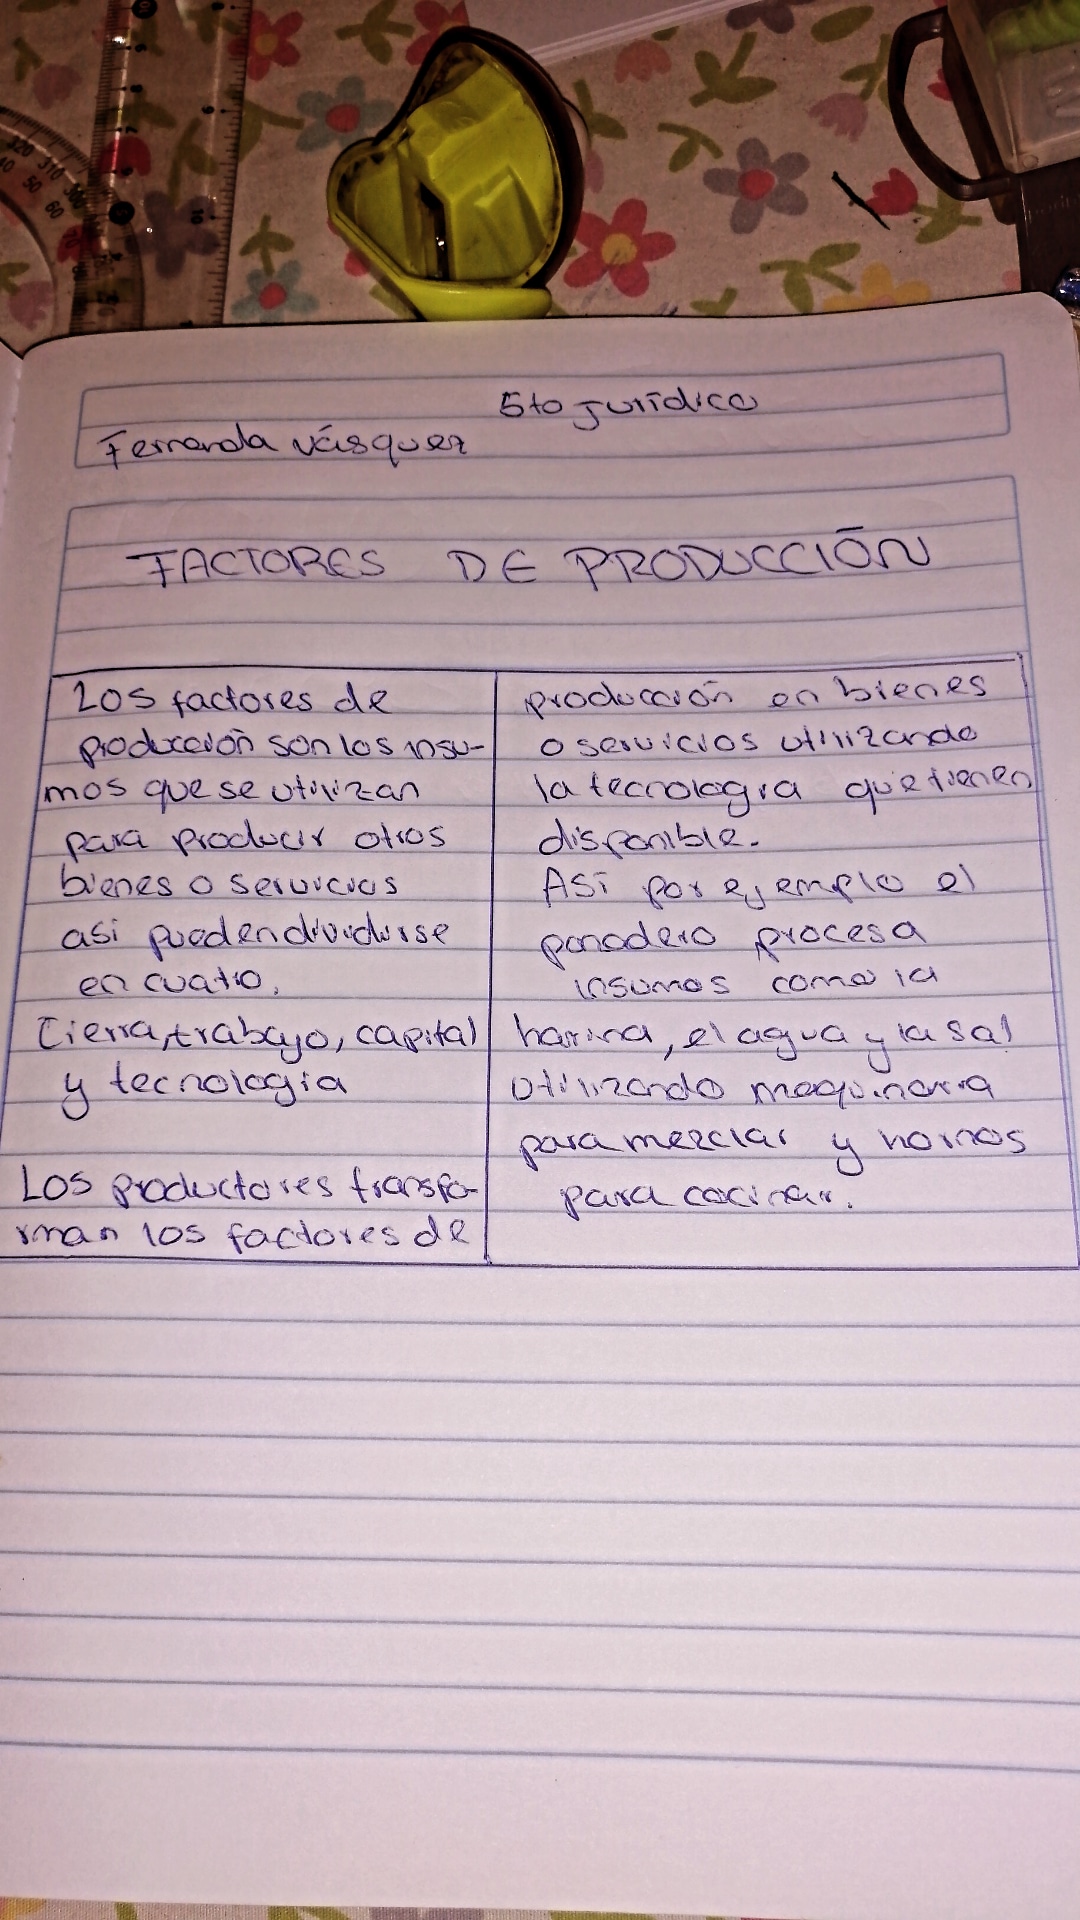 5to Jurídico
Fernanda Vásquez
FACTORES DE PRODUCCIÓN
Los factores de
producción son los insu-
mos que se utilizan
para producir otros
bienes o servicios
asi pueden dividirse
en cuatro.
Tierra, trabajo, capital
y tecnologia
Los productores transfo-
rman los factores de
producción en bienes
o servicios utilizando
la tecnologia que tienen
disponible.
Asi por ejemplo el
panadero procesa
insumos como la
harina, el agua y la sal
utilizando maquinaria
para mezclar y hornos
para cocinar.